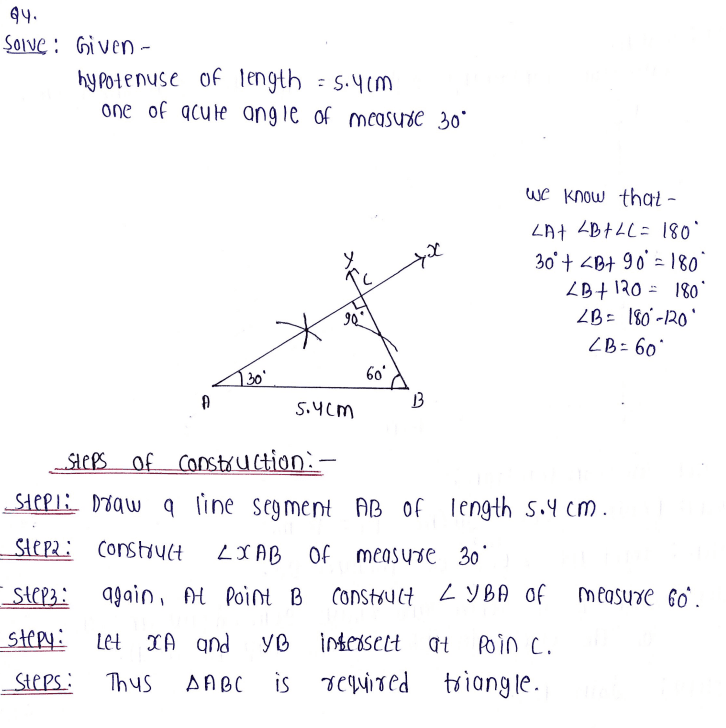 Q4.
Solve: Given -
hypotenuse of length = 5.4cm
one of acute angle of measure 30°
we know that -
∠A+ ∠B+∠C= 180°
30°+ ∠B+ 90°=180°
∠B+120 = 180°
∠B= 180°-120°
∠B= 60°
y
x
C
90°
30°
60°
A
B
5.4cm
steps of construction:-
Step1: Draw a line segment AB of length 5.4 cm.
Step2: construct ∠XAB of measure 30°
Step3: again, At Point B construct ∠YBA of measure 60°.
Step4: Let XA and YB intersect at Poin C.
Step5: Thus ΔABC is required triangle.